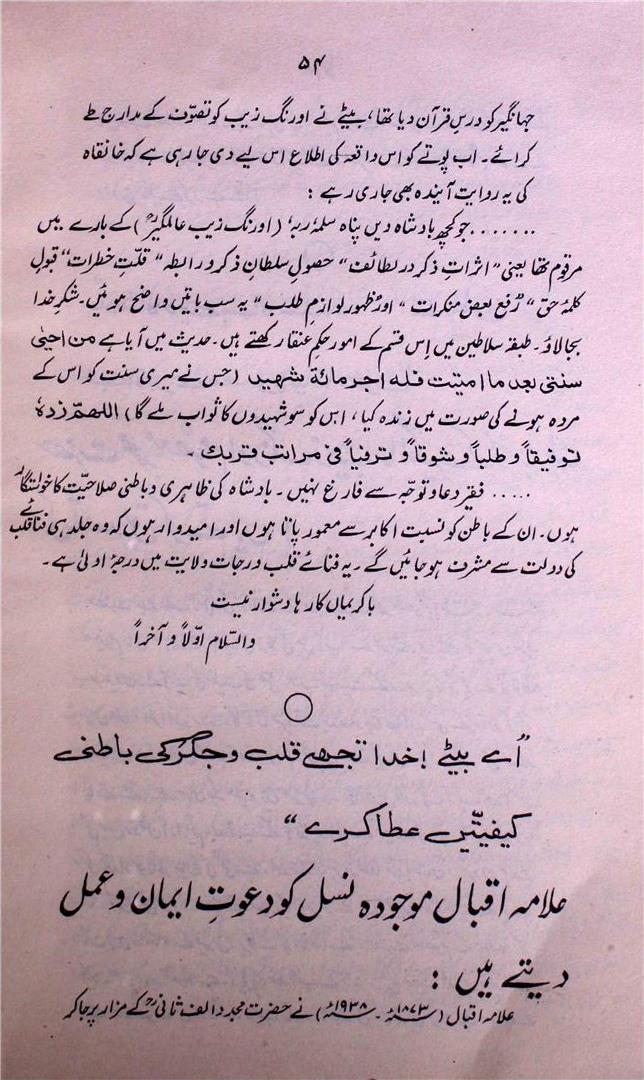 ۵۴
جہانگیر کو درسِ قرآن دیا تھا، بیٹے نے اورنگ زیب کو تصوّف کے مدارج طے
کرائے۔ اب پوتے کو اس واقعہ کی اطلاع اس لیے دی جا رہی ہے کہ خانقاہ
کی یہ روایت آیندہ بھی جاری رہے :
....... جو کچھ بادشاہ دیں پناہ سلمہٗ ربہٗ (اورنگ زیب عالمگیرؒ) کے بارے میں
مرقوم تھا یعنی "اثراتِ ذکر در لطائف" حصولِ سلطانِ ذکر و رابطہ "قلّتِ خطرات" قبولِ
کلمۂ حق "رفع بعض منکرات" اور ظہور لوازمِ طلب" یہ سب باتیں واضح ہوئیں۔ شکرِ خدا
بجا لاؤ۔ طبقۂ سلاطین میں اِس قسم کے امور حکمِ عنقا رکھتے ہیں۔ حدیث میں آیا ہے من احییٰ
سنتی بعد ما امیتت فلہ اجر مائة شہید (جس نے میری سنت کو اس کے
مردہ ہونے کی صورت میں زندہ کیا، اس کو سو شہیدوں کا ثواب ملے گا) اللھم زدہٗ
توفیقاً و طلباً و شوقاً و ترقیاً فی مراتب قربک۔
..... فقیر دعا و توجّہ سے فارغ نہیں۔ بادشاہ کی ظاہری و باطنی صلاحیّت کا خواستگار
ہوں۔ ان کے باطن کو نسبت اکابر سے معمور پاتا ہوں اور امیدوار ہوں کہ وہ جلد ہی فنائے قلب
کی دولت سے مشرف ہو جائیں گے۔ یہ فنائے قلب درجات ولایت میں درجۂ اولیٰ ہے۔
با کریماں کار ہا دشوار نیست
والسّلام اوّلاً و آخراً
"اے بیٹے! خدا تجھے قلب و جگر کی باطنی
کیفیتیں عطا کرے"
علامہ اقبال موجودہ نسل کو دعوتِ ایمان و عمل
دیتے ہیں :
علامہ اقبال (۱۸۷۳ء۔ ۱۹۳۸ء) نے حضرت مجدد الف ثانیؒ کے مزار پر جا کر